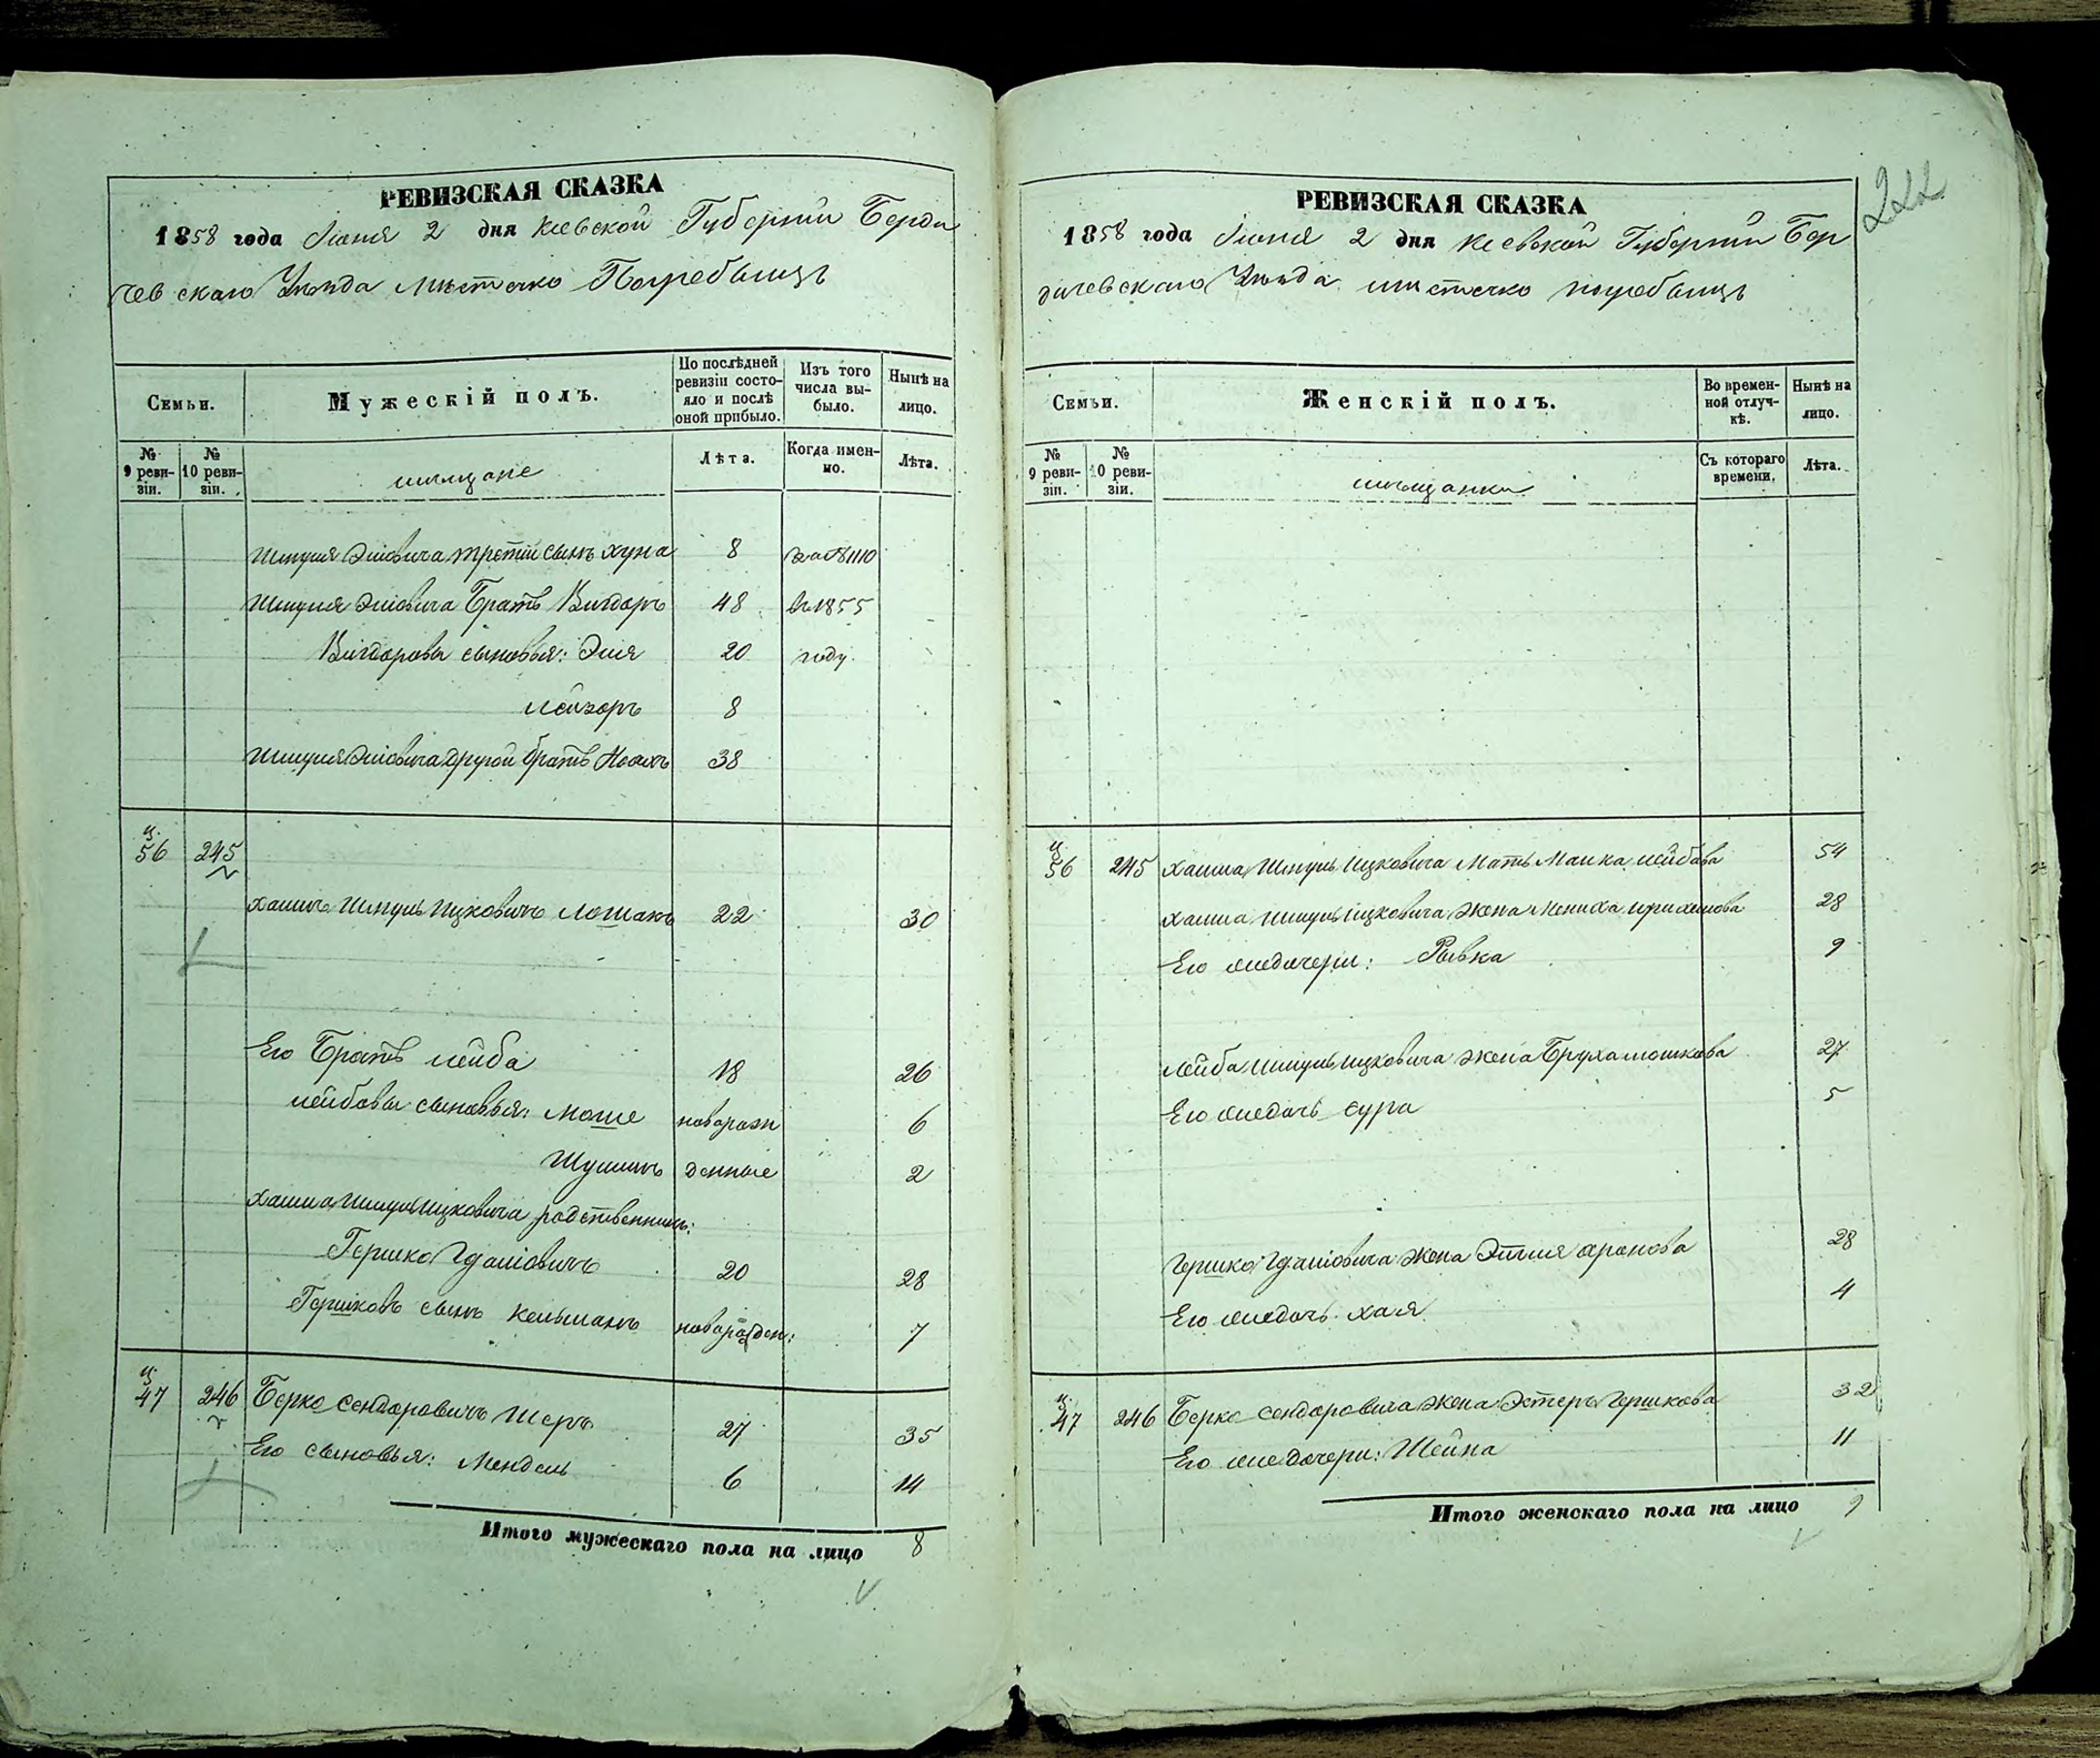 РЕВИЗСКАЯ СКАЗКА
1858 года Июня 2 дня Киевской Губерніи Берди
чевскаго Уѣзда мѣстечко Погребыщъ
Семьи.
Мужескій полъ.
По послѣдней ревизіи состояло и послѣ оной прибыло.
Изъ того числа выбыло.
Нынѣ на лицо.
№ 9 ревизіи.
№ 10 ревизіи.
мѣщане
Лѣта.
Когда именно.
Лѣта.
Шмуля Эліовича третій сынъ Хуна 8
Шмуля Эліовича Братъ Вигдоръ 48 въ 1855
Вигдоровы сыновья: Эля 20 году
Лейзоръ 8
Шмуля Эліовича другой братъ 38
56 245
Хаимъ Шмуль Ицковичъ Лошакъ 22 30
Его Братъ Лейба 18 26
Лейбовы сыновья: Моше новорож 6
Шулимъ денные 2
Хаима Шмуль Ицковича родственникъ:
Гершко Гдаліовичъ 20 28
Гершковъ сынъ Кельманъ новорожден: 7
47 246 Берко Сендоровичъ Шеръ 27 35
Его сыновья: Мендель 6 14
Итого мужескаго пола на лицо 8
222
РЕВИЗСКАЯ СКАЗКА
1858 года Июня 2 дня Киевской Губерніи Бер
дичевскаго Уѣзда мѣстечко Погребыщъ
Семьи.
Женскій полъ.
Во временной отлучкѣ.
Нынѣ на лицо.
№ 9 ревизіи.
№ 10 ревизіи.
мѣщанки
Съ котораго времени.
Лѣта.
56 245 Хаима Шмуль Ицковича Мать Малка Лейбова 54
Хаима Шмуль Ицковича жена Мениха 28
Его дочери: Рывка 9
Лейба Шмуль Ицковича жена Бруха Мошкова 27
Его дочь Сура 5
Гершка Гдаліовича жена Этля Аронова 28
Его дочь Хая 4
47 246 Берко Сендоровича жена Эстеръ Гершкова 32
Его дочери: Шейна 11
Итого женскаго пола на лицо 9